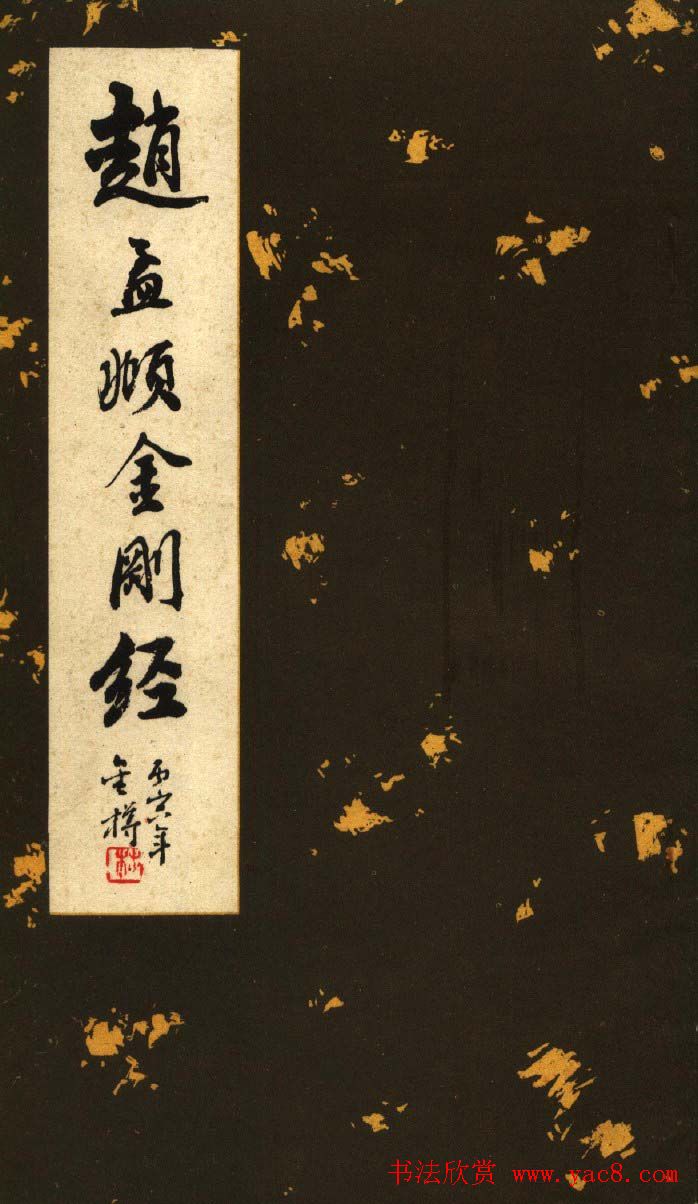 趙孟頫金剛经
丙寅年
金樽
书法欣赏 www.yac8.com